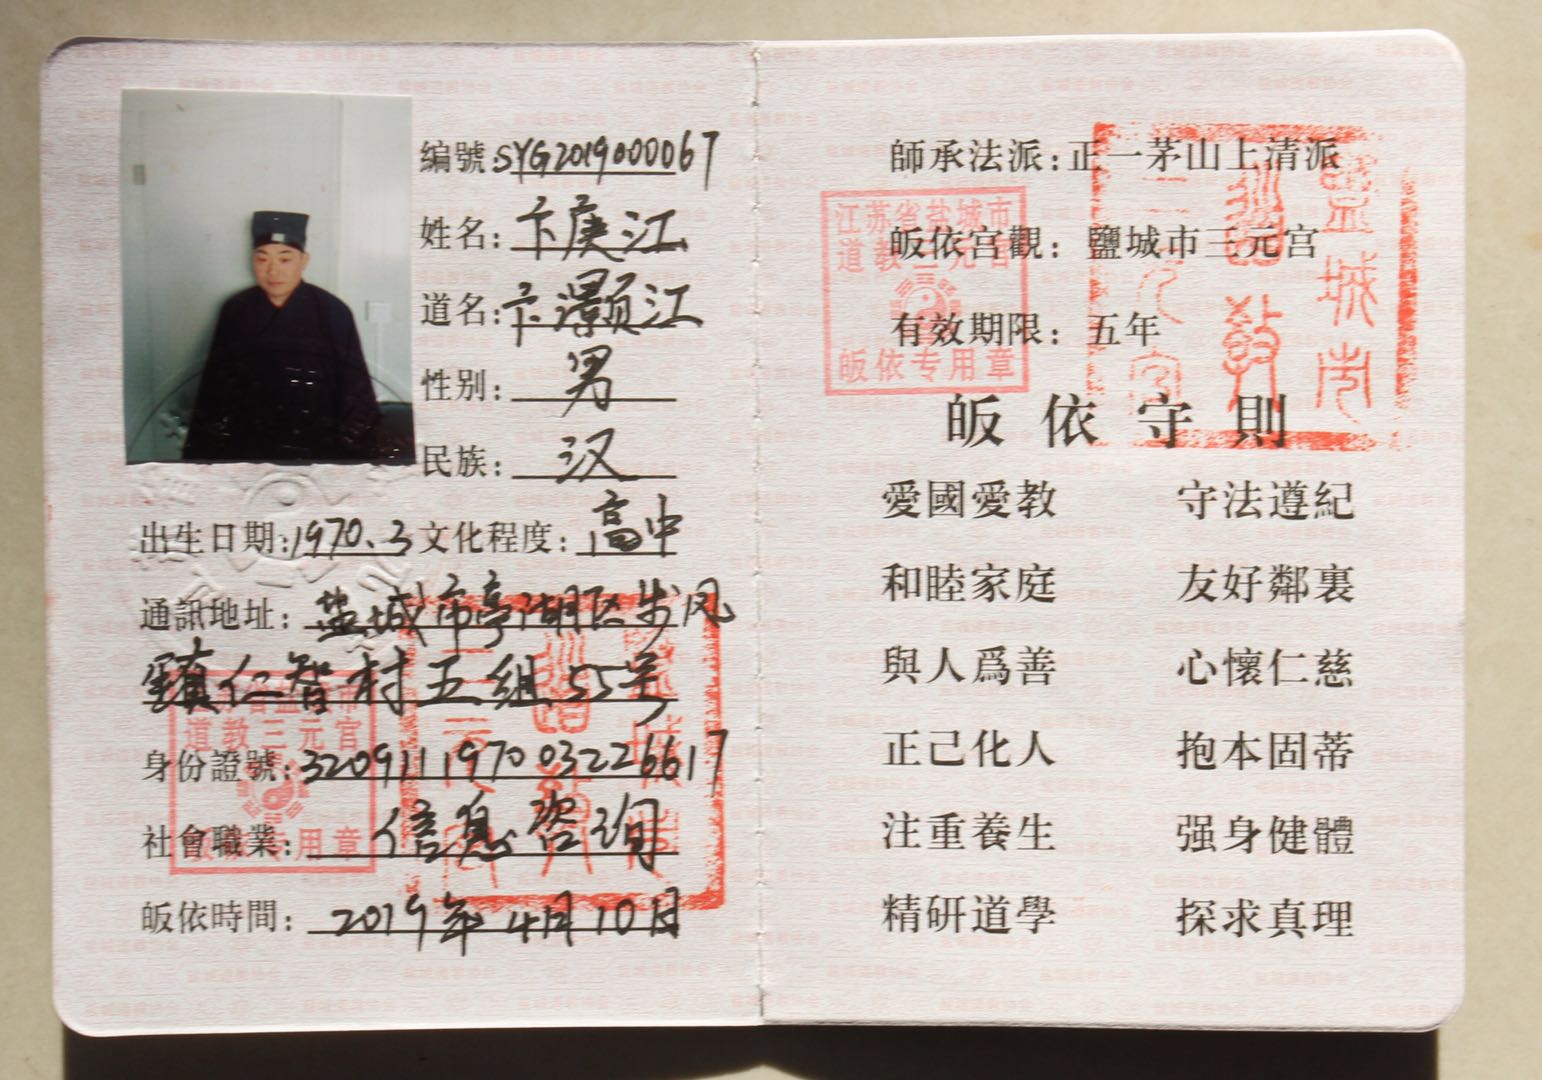 編號SYG2019000067
姓名:卞庚江
道名:卞灝江
性别:男
民族:汉
出生日期:1970.3 文化程度:高中
通訊地址:盐城市亭湖区步凤
镇仁智村五组55号
身份證號:320911197003226617
社會職業:信息咨询
皈依時間:2019年4月10日
道教三元宫
專用章
師承法派:正一茅山上清派
皈依宫觀:鹽城市三元宫
有效期限:五年
江苏省盐城市
道教三元宫
皈依专用章
皈依守則
愛國愛教 守法遵紀
和睦家庭 友好鄰裏
與人爲善 心懷仁慈
正己化人 抱本固蒂
注重養生 强身健體
精研道學 探求真理